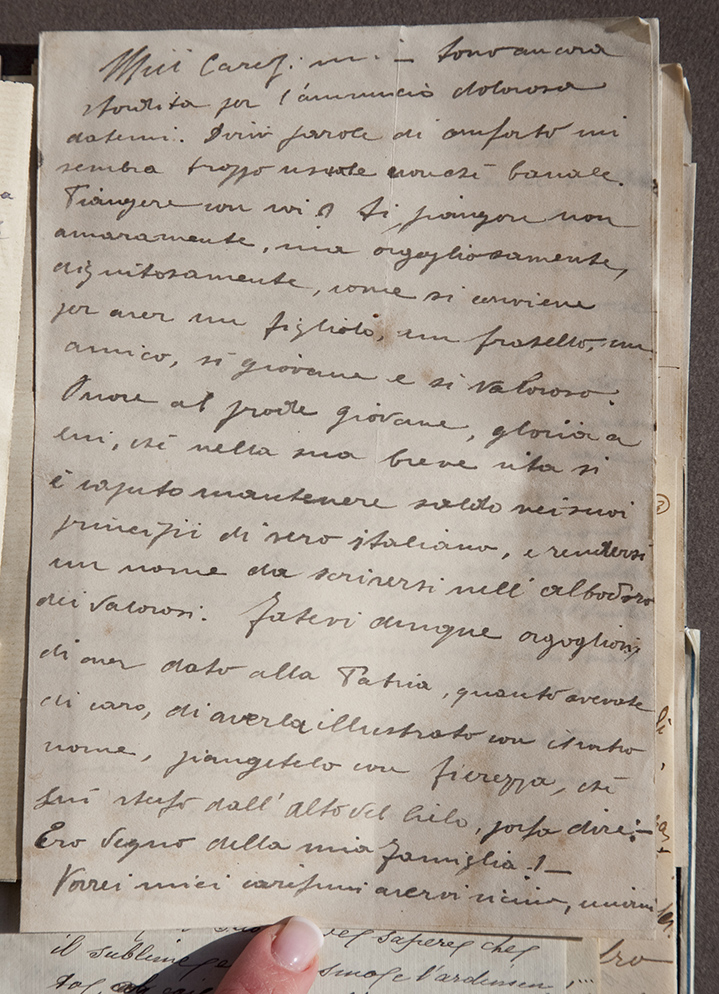 Miei Carez.mi – Sono ancora
stordita per l'annuncio doloroso
datomi. Dirvi parole di conforto mi
sembra troppo usuale nonché banale.
Piangere con voi? Si, piangere non
amaramente, ma orgogliosamente,
dignitosamente, come si conviene
per aver un figliolo, un fratello, un
amico, sì giovane e sì valoroso.
Onore al prode giovane, gloria a
lui, che nella sua breve vita si
è saputo mantenere saldo nei suoi
principii di vero italiano, e rendersi
un nome da scriversi nell'albo d'oro
dei valorosi. Fatevi dunque orgogliosi,
di aver dato alla Patria, quanto avevate
di caro, di averla illustrato con il vostro
nome, piangetelo con fierezza, che
lui stesso dall'alto del Cielo, possa dire:–
Ero degno della mia famiglia!–
Vorrei miei carissimi avervi vicino, unirmi
sapere che
il sublime
l'ardimen